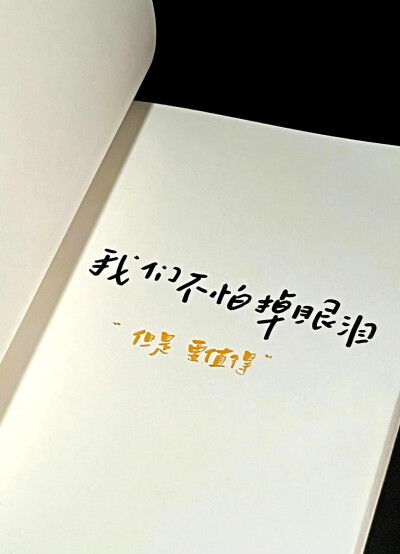 我们不怕掉眼泪
“但是 要值得”